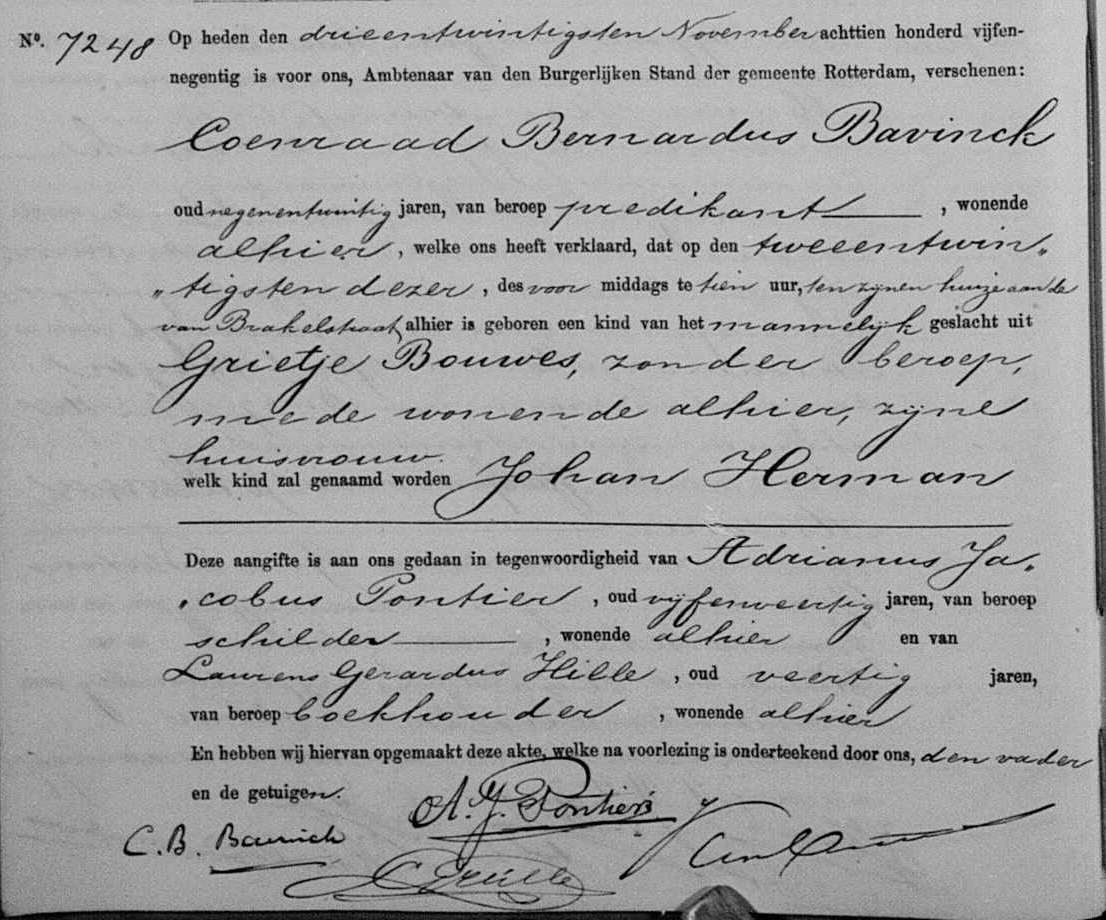 Nº. 7248 Op heden den drieentwintigsten November achttien honderd vijfen-
negentig is voor ons, Ambtenaar van den Burgerlijken Stand der gemeente Rotterdam, verschenen:
Coenraad Bernardus Bavinck
oud negenentwintig jaren, van beroep predikant , wonende
alhier , welke ons heeft verklaard, dat op den tweeentwin„
„tigsten dezer , des voor middags te tien uur, ten zynen huize aan de
van Brakelstraat, alhier is geboren een kind van het mannelyk geslacht uit
Grietje Bouwes, zonder beroep,
mede wonende alhier, zyne
huisvrouw.
welk kind zal genaamd worden Johan Herman
Deze aangifte is aan ons gedaan in tegenwoordigheid van Adrianus Ja„
„cobus Pontier , oud vyfenveertig jaren, van beroep
schilder , wonende alhier en van
Laurens Gerardus Hille , oud veertig jaren,
van beroep boekhouder , wonende alhier
En hebben wij hiervan opgemaakt deze akte, welke na voorlezing is onderteekend door ons, den vader
en de getuigen.
A. J. Pontier
C. B. Bavinck